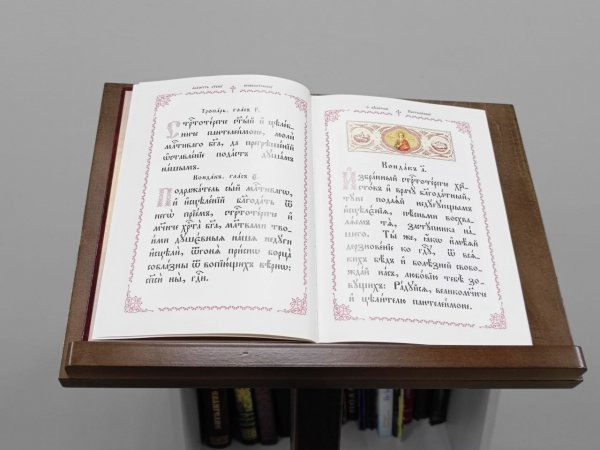 Тропа́рь, гла́съ г҃.
Стрⷭ҇тоте́рпче ст҃ы́й и҆ цѣле́б-
ниче пантелеи́моне, молѝ
млⷭ҇тиваго бг҃а, да прегрѣше́нїй
ѡ҆ставле́нїе пода́стъ дꙋша́мъ
на́шымъ.
Конда́къ, гла́съ є҃.
Подража́тель сы́й млⷭ҇тиваго,
и҆ и҆сцѣле́нїй благода́ть ѿ
негѡ̀ прїе́мъ, стрⷭ҇тоте́рпче и҆
мч҃ниче хрⷭ҇та̀ бг҃а, мл҃твами тво-
и́ми дꙋшє́вныѧ на́шѧ недꙋ́ги
и҆сцѣлѝ, ѿгонѧ̀ при́снѡ борца̀
собла́зны ѿ вопїю́щихъ вѣ́рнѡ:
сп҃сѝ ны̀, гдⷭ҇и.
Конда́къ а҃.
И҆збра́нный стрⷭ҇тоте́рпче хрⷭ҇-
то́въ и҆ врачꙋ̀ благода́тный,
тꙋ́не подаѧ́й недꙋ́гꙋющымъ
и҆сцѣлє́нїѧ, пѣ́сньми восхва-
лѧ́емъ тѧ̀, застꙋ́пника на́-
шего. Ты́ же, ꙗ҆́кѡ и҆мѣ́ѧй
дерзнове́нїе ко гдⷭ҇ꙋ, ѿ всѧ́-
кихъ бѣ́дъ и҆ болѣ́зней свобо-
жда́й на́съ, любо́вїю тебѣ̀ зо-
вꙋ́щихъ: Ра́дꙋйсѧ, великомч҃ниче
и҆ цѣли́телю пантелеи́моне.